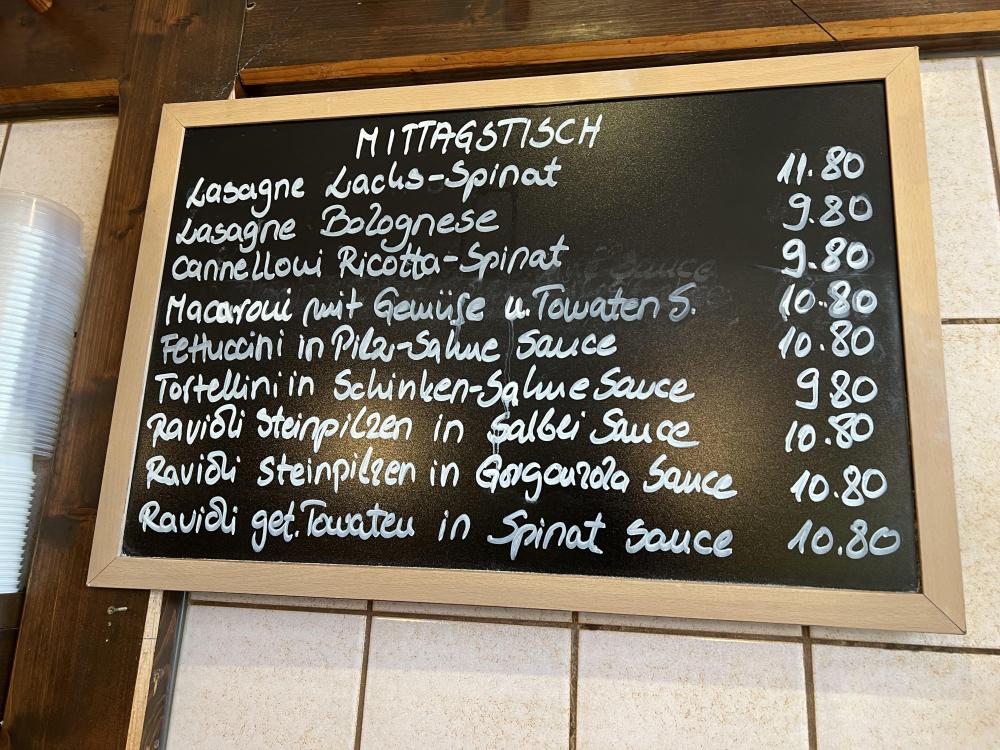 MITTAGSTISCH
Lasagne Lachs-Spinat 11.80
Lasagne Bolognese 9.80
Cannelloni Ricotta-Spinat 9.80
Macaroni mit Gemüse u. Tomaten S. 10.80
Fettuccini in Pilz-Sahne Sauce 10.80
Tortellini in Schinken-Sahne Sauce 9.80
Ravioli Steinpilzen in Salbei Sauce 10.80
Ravioli Steinpilzen in Gorgonzola Sauce 10.80
Ravioli get. Tomaten in Spinat Sauce 10.80